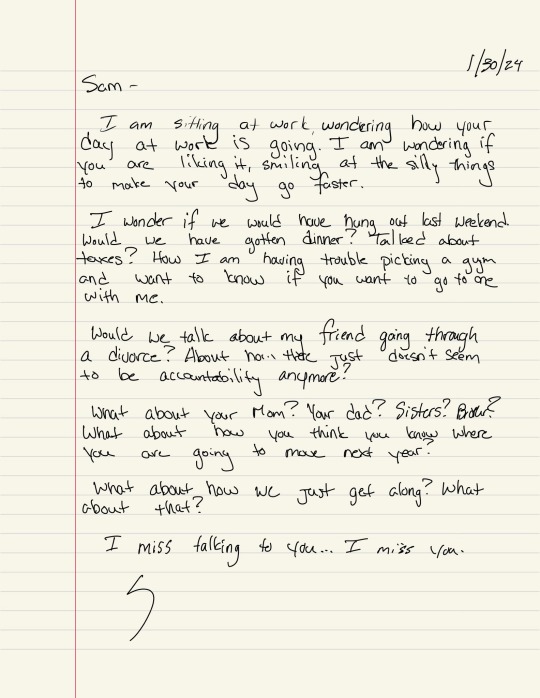 1/30/24
Sam -
I am sitting at work, wondering how your
day at work is going. I am wondering if
you are liking it, smiling at the silly things
to make your day go faster.
I wonder if we would have hung out last weekend.
Would we have gotten dinner? Talked about
taxes? How I am having trouble picking a gym
and want to know if you want to go to one
with me.
Would we talk about my friend going through
a divorce? About how there just doesn't seem
to be accountability anymore?
What about your Mom? Your dad? Sisters?
What about how you think you know where
you are going to move next year?
What about how we just get along? What
about that?
I miss talking to you... I miss you.
S